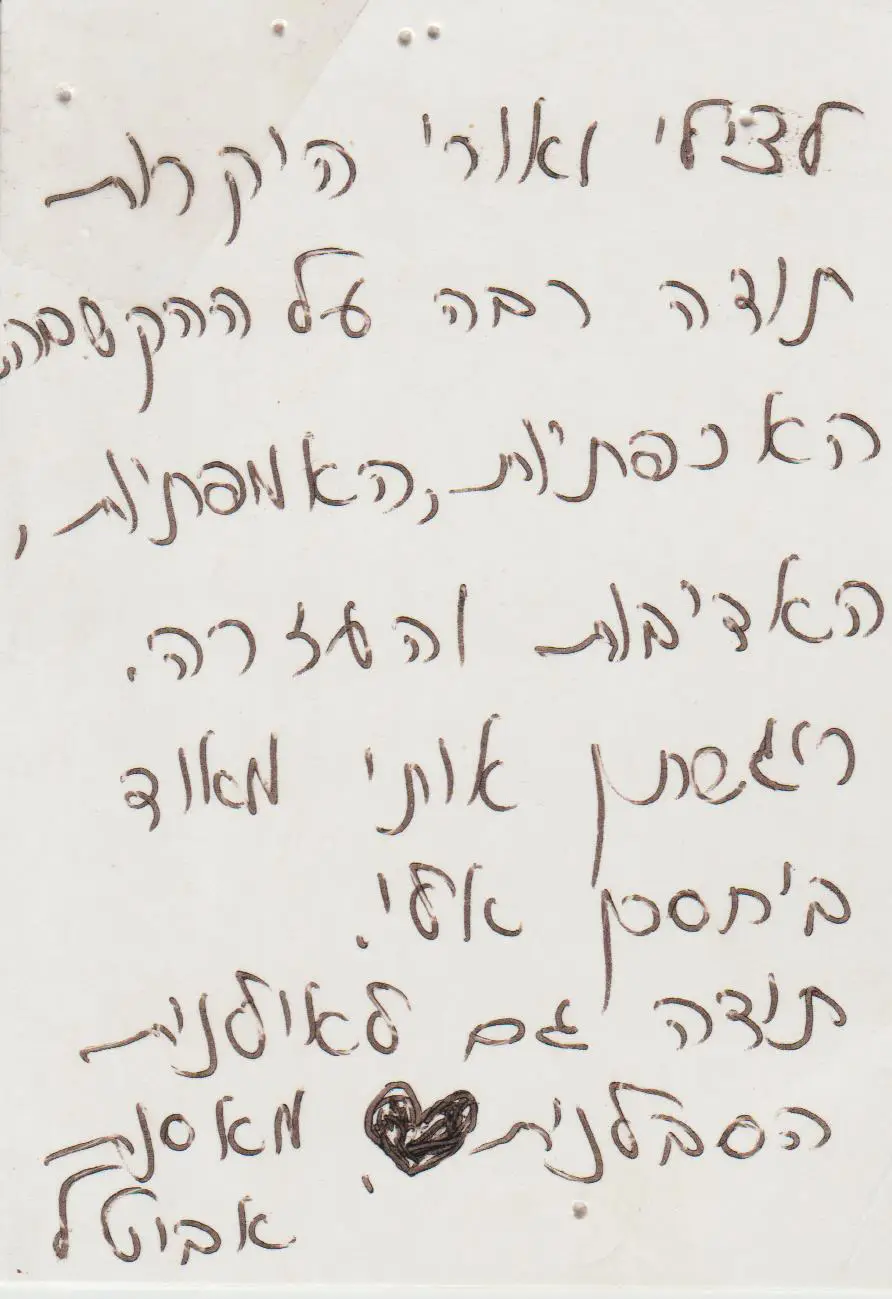 לצילי ואורי היקרות
תודה רבה על ההקשבה
האכפתיות, האמפתיות,
האדיבות והעזרה.
ריגשתן אותי מאוד
ביחסכן אלי.
תודה גם לאילנית
הסבלנית. מאסנת
אביטל